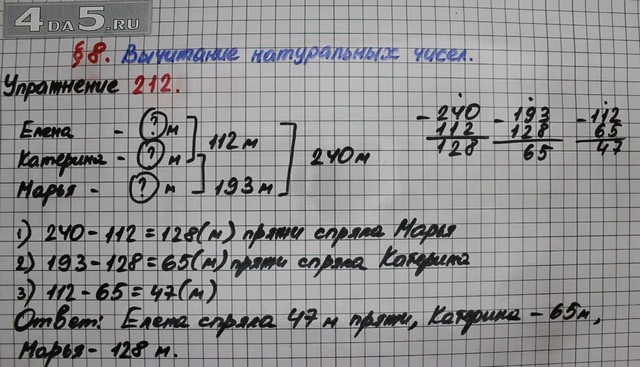 4DA5.RU
§8. Вычитание натуральных чисел.
Упражнение 212.
Елена - ? м
Катерина - ? м
Марья - ? м
112 м
193 м
240 м
- 240
112
128
- 193
128
65
- 112
65
47
1) 240 - 112 = 128(м) пряжи спряла Марья
2) 193 - 128 = 65(м) пряжи спряла Катерина
3) 112 - 65 = 47(м)
Ответ: Елена спряла 47 м пряжи, Катерина - 65 м,
Марья - 128 м.